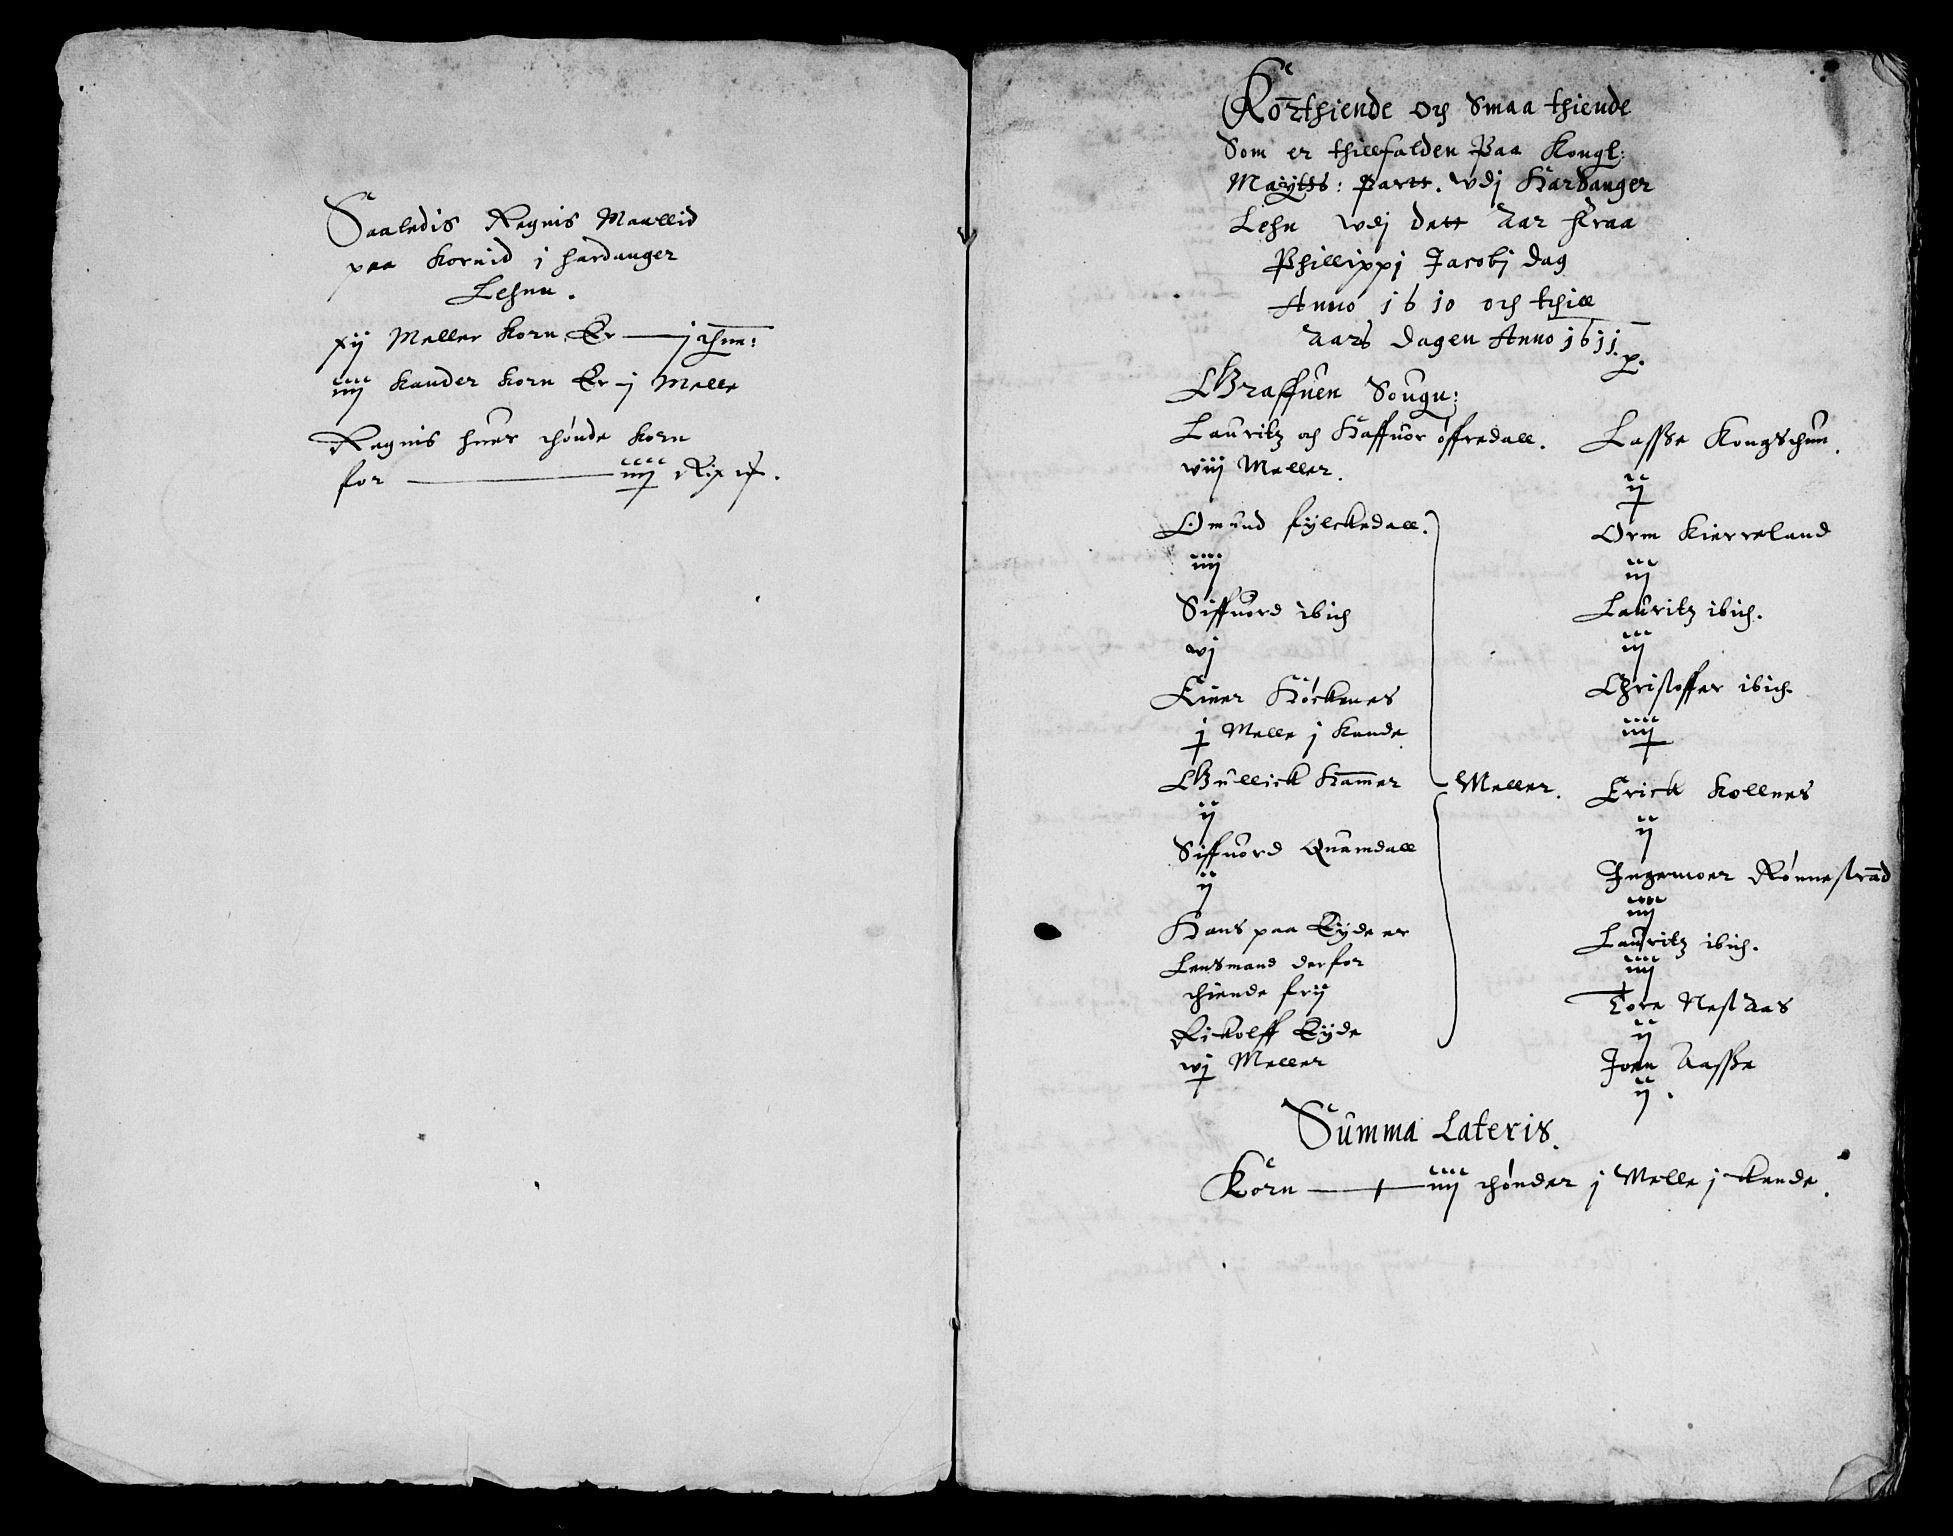 Saaledis Regnis Maallid
paa Kornid j hardanger
Lehnn.
xij Meller Korn Er — j thne:
iiij Kander Korn Er — j Melle
Regnis huer thønde Korn
for — iiij Rix
Kornthiende och Smaa thiende
Som er thillfalden Paa Kongl:
Maytts: Partt. vdj Hardanger
Lehn vdj dett Aar Fraa
Phillippj Jacobj dag
Anno 1610 och thill
Aars dagen Anno 1611.
Graffuen Sougn:
Lauritz och Haffuor Øffredall.
viij Meller.
Omund fylckedall.
iiij
Siffuord ibid
vj
Einer Høckenes
j Melle j Kande
Gullick Hammer
ij
Siffuord Quamdall
ij
Hans paa Eyde er
Lensmand derfor
thiende frij
Rickolff Eyde
vj Meller
Meller.
Lasse Kongsthun.
ij
Orm Kierreland
iij
Lauritz ibid.
iij
Christoffer ibid.
iiij
Erick Kollnes
ij
Ingemoer Rønnestrand
iiij
Lauritz ibid.
iiij
Tore Nestaas
ij
Joen Aasse
ij.
Summa Lateris.
Korn — iiij thønder j Melle j Kande.